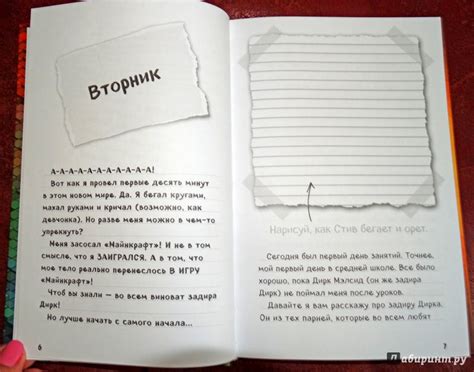 Вторник
А-А-А-А-А-А-А-А-А-А-А!
Вот как я провел первые десять минут
в этом новом мире. Да. Я бегал кругами,
махал руками и кричал (возможно, как
девчонка). Но разве меня можно в чем-то
упрекнуть?
Меня засосал «Майнкрафт»! И не в том
смысле, что я ЗАИГРАЛСЯ. А в том, что
мое тело реально перенеслось В ИГРУ
«Майнкрафт»!
Чтоб вы знали – во всем виноват задира
Дирк!
Но лучше начать с самого начала...
6
Нарисуй, как Стив бегает и орет.
Сегодня был первый день занятий. Точнее,
мой первый день в средней школе. Все было
хорошо, пока Дирк Мэлсид (он же задира
Дирк) не поймал меня после уроков.
Давайте я вам расскажу про задиру Дирка.
Он из тех парней, которые во всем любят
7
Лабиринт.ру